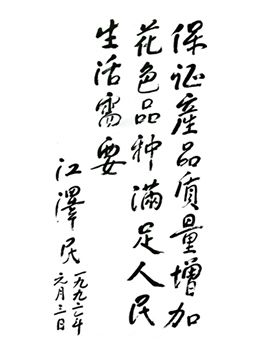 保证產品质量增加
花色品种滿足人民
生活需要
江澤民
一九九二年
元月三日